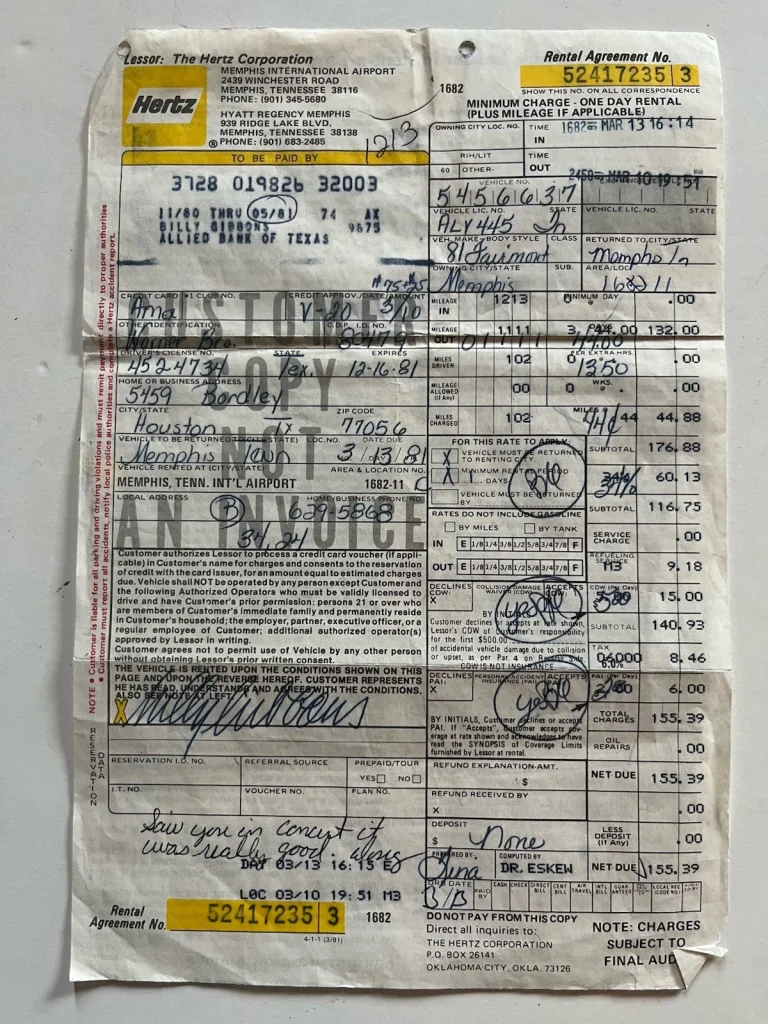 Lessor: The Hertz Corporation
Hertz
MEMPHIS INTERNATIONAL AIRPORT
2439 WINCHESTER ROAD
MEMPHIS, TENNESSEE 38116
PHONE: (901) 345-5680
HYATT REGENCY MEMPHIS
939 RIDGE LAKE BLVD,
MEMPHIS, TENNESSEE 38138
PHONE: (901) 683-2485
1213
1682
TO BE PAID BY
3728 019826 32003
11/80 THRU 05/81 74 AX
BILLY GIBBONS 9675
ALLIED BANK OF TEXAS
CUSTOMER COPY NOT AN INVOICE
CREDIT CARD #1 CLUB NO. CREDIT APPROV./DATE/AMOUNT
Ama V-20 3/10
OTHER IDENTIFICATION C.D.P. I.D. NO.
Warner Bro. 80479
DRIVER'S LICENSE NO. STATE EXPIRES
4524734 Tex. 12-16-81
HOME OR BUSINESS ADDRESS
5459 Bordley
CITY/STATE ZIP CODE
Houston Tx 77056
VEHICLE TO BE RETURNED TO (CITY/STATE) LOC. NO. DATE DUE
Memphis Tenn 3/13/81
VEHICLE RENTED AT (CITY/STATE) AREA & LOCATION NO.
MEMPHIS, TENN. INT'L AIRPORT 1682-11
LOCAL ADDRESS HOME/BUSINESS PHONE NO.
B 629-5868
34,24
Customer authorizes Lessor to process a credit card voucher (if applicable) in Customer's name for charges and consents to the reservation of credit with the card issuer, for an amount equal to estimated charges due. Vehicle shall NOT be operated by any person except Customer and the following Authorized Operators who must be validly licensed to drive and have Customer's prior permission: persons 21 or over who are members of Customer's immediate family and permanently reside in Customer's household; the employer, partner, executive officer, or a regular employee of Customer; additional authorized operator(s) approved by Lessor in writing.
Customer agrees not to permit use of Vehicle by any other person without obtaining Lessor's prior written consent.
THE VEHICLE IS RENTED UPON THE CONDITIONS SHOWN ON THIS PAGE AND UPON THE REVERSE HEREOF. CUSTOMER REPRESENTS HE HAS READ, UNDERSTANDS AND AGREES WITH THE CONDITIONS. ALSO SEE NOTE AT LEFT.
X Billy Gibbons
NOTE • Customer is liable for all parking and driving violations and must remit payment directly to proper authorities
• Customer must report all accidents, notify local police authorities and complete a Hertz accident report.
RESERVATION DATA
RESERVATION I.D. NO. REFERRAL SOURCE PREPAID/TOUR
YES NO
I.T. NO. VOUCHER NO. PLAN NO.
Saw you in concert it
was really good.
DAY 03/13 16:15 E
LOC 03/10 19:51 M3
Rental
Agreement No. 52417235 3 1682
4-1-1 (3/81)
Rental Agreement No.
52417235 3
SHOW THIS NO. ON ALL CORRESPONDENCE
MINIMUM CHARGE - ONE DAY RENTAL
(PLUS MILEAGE IF APPLICABLE)
OWNING CITY LOC. NO. TIME IN 1682 MAR 13 16:14
RIH/LIT TIME OUT
60 OTHER- 2450 MAR 10 19:51
VEHICLE NO.
5456637
VEHICLE LIC. NO. STATE VEHICLE LIC. NO. STATE
ALY445 Tn
VEH. MAKE-BODY STYLE CLASS RETURNED TO CITY/STATE
81 Fairmont Memphis Tn
OWNING CITY/STATE SUB. AREA/LOC
Memphis 168211
MILEAGE IN 1213 0 MINIMUM DAY .00
MILEAGE OUT 1111 3 DAYS 44.00 132.00
MILES DRIVEN 102 0 PER EXTRA HRS. 1350 .00
MILEAGE ALLOWED (If Any) 00 0 WKS. .00
MILES CHARGED 102 MILES 44¢ 44 44.88
FOR THIS RATE TO APPLY: SUBTOTAL 176.88
X VEHICLE MUST BE RETURNED TO RENTING CITY
X MINIMUM RENTAL PERIOD 1 DAYS 60.13
VEHICLE MUST BE RETURNED BY SUBTOTAL 116.75
RATES DO NOT INCLUDE GASOLINE
BY MILES BY TANK SERVICE CHARGE .00
IN E 1/8 1/4 3/8 1/2 5/8 3/4 7/8 F REFUELING SERVICE
OUT E 1/8 1/4 3/8 1/2 5/8 3/4 7/8 F M3 9.18
DECLINES CDW: X COLLISION DAMAGE WAIVER (CDW) ACCEPTS yes CDW (Per Day) 5.00 15.00
Customer declines or accepts at rate shown, Lessor's CDW of Customer's responsibility for the first $500.00 of accidental vehicle damage due to collision or upset, as per Par. 4 on Reverse Side
CDW IS NOT INSURANCE
SUBTOTAL 140.93
TAX 06000 6.0% 8.46
DECLINES PAI: X PERSONAL ACCIDENT INSURANCE (PAI) ACCEPTS yes PAI (Per Day) 6.00
BY INITIALS, Customer declines or accepts PAI. If "Accepts", Customer accepts coverage at rate shown and acknowledges to have read the SYNOPSIS of Coverage Limits furnished by Lessor at rental.
TOTAL CHARGES 155.39
OIL REPAIRS .00
REFUND EXPLANATION-AMT. $ NET DUE 155.39
REFUND RECEIVED BY X .00
DEPOSIT $ None LESS DEPOSIT (If Any) .00
PREPARED BY: Tina COMPUTED BY DR. ESKEW NET DUE 155.39
PAID BY CASH CHECK DIRECT BILL CENT BILL AIR TRAVEL INTL BILL
DO NOT PAY FROM THIS COPY
Direct all inquiries to:
THE HERTZ CORPORATION
P.O. BOX 26141
OKLAHOMA CITY, OKLA. 73126
NOTE: CHARGES
SUBJECT TO
FINAL AUD